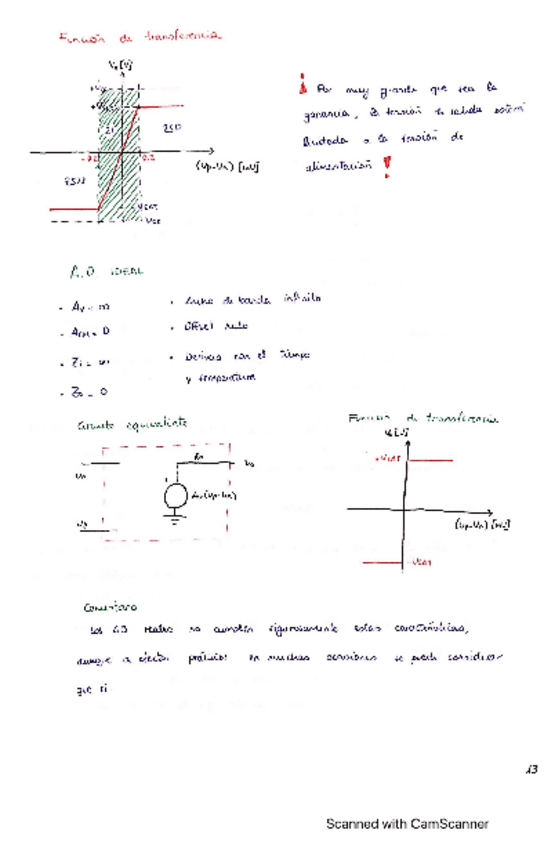 Función de transferencia
Vo [V]
+Vcc
ZL
ZSP
-0.2
0.2
(Vp-Vn) [mV]
ZSN
-VSAT
-Vcc
! Por muy grande que sea la
ganancia, la tensión de salida estará
limitada a la tensión de
alimentación !
A.O IDEAL
- Av = ∞
- Acm = 0
- Zi = ∞
- Zo = 0
- Ancho de banda infinito
- Offset nulo
- Derivas con el tiempo
y temperatura
Circuito equivalente
Vn
Ro
Vo
+
Av(Vp-Vn)
Vp
Función de transferencia
Vo [V]
+VSAT
(Vp-Vn) [mV]
-VSAT
Comentario
Los AO reales no cumplen rigurosamente estas características,
aunque a efectos prácticos en muchas ocasiones se puede considerar
que sí
13
Scanned with CamScanner